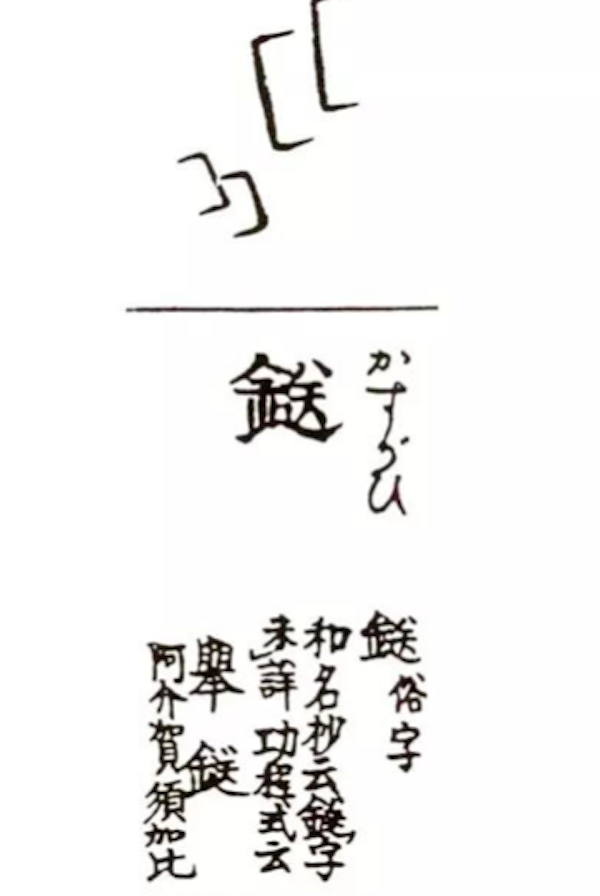 かすがひ
鎹
鎹 俗字
和名抄云鎹字
未詳功程式云
擧鎹
阿介賀須加比